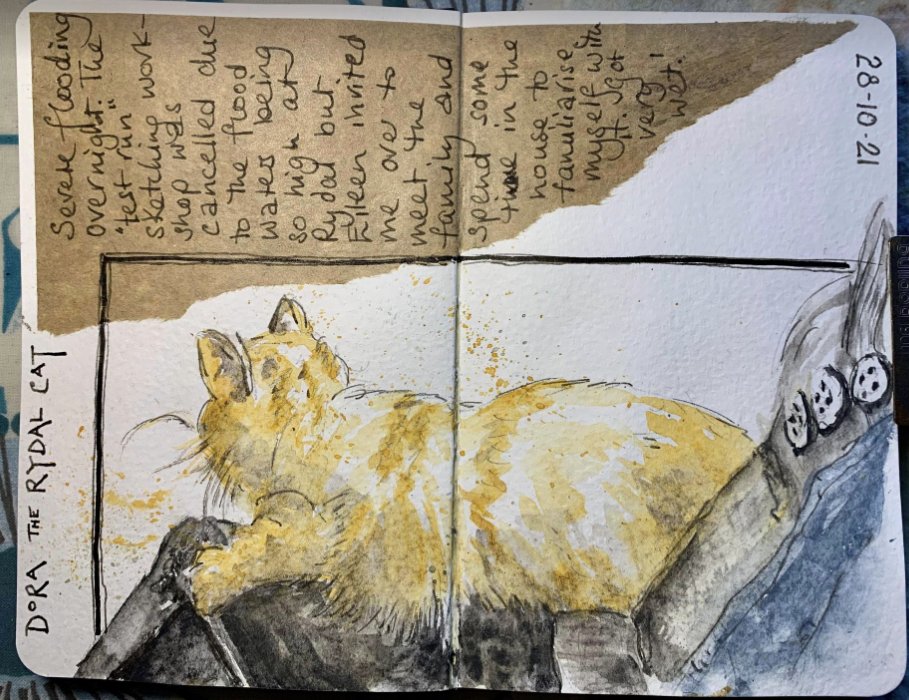 DORA THE RYDAL CAT
Severe flooding
overnight. The
"test run"
sketching work-
shop was
cancelled due
to the flood
waters being
so high at
Rydal but
Eileen invited
me over to
meet the
family and
spend some
time in the
house to
familiarise
myself with
it. I got
very
wet!
28-10-21